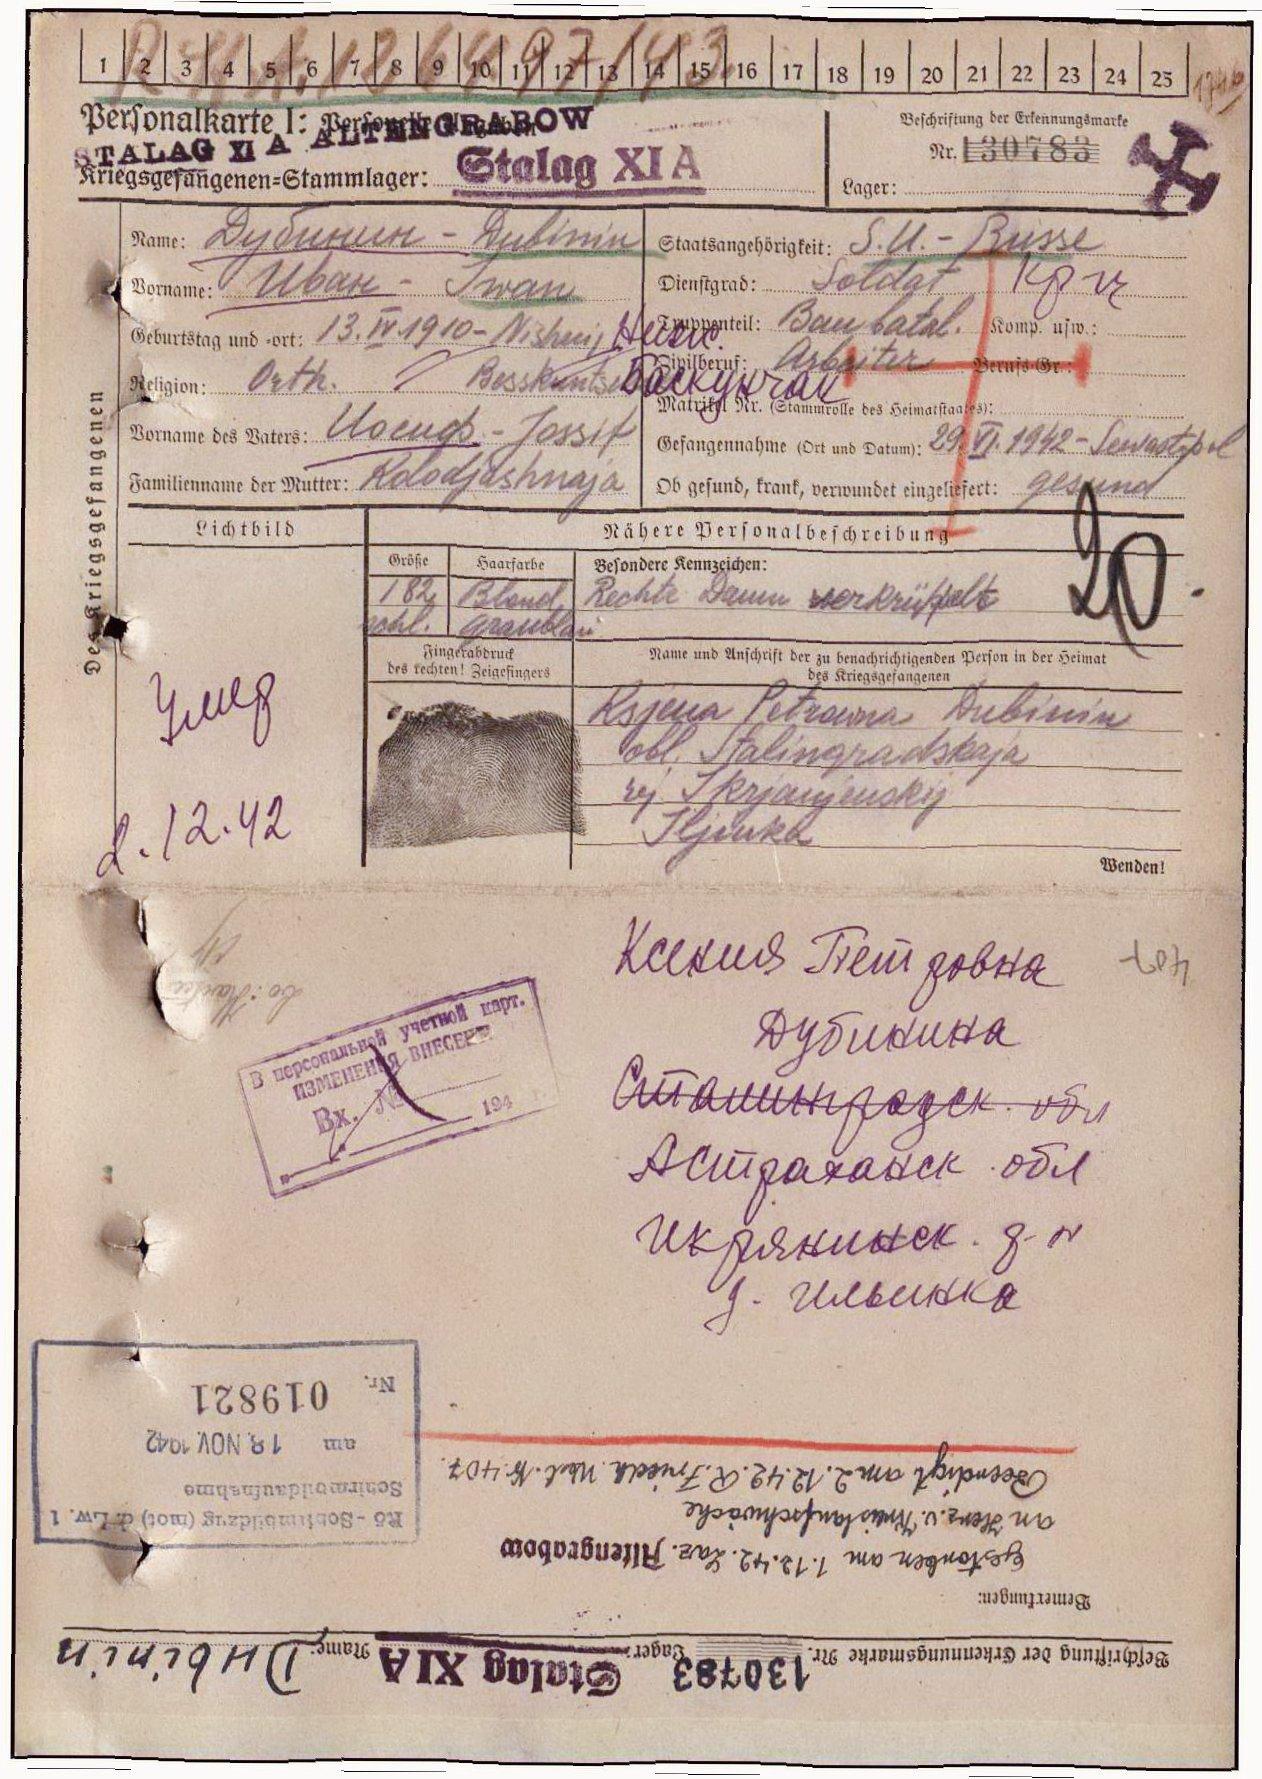 1 2 3 4 5 6 7 8 9 10 11 12 13 14 15 16 17 18 19 20 21 22 23 24 25
Personalkarte I: Personelle Angaben
STALAG XI A ALTENGRABOW
Kriegsgefangenen-Stammlager: Stalag XI A
Beschriftung der Erkennungsmarke
Nr. 130783
Lager:
Des Kriegsgefangenen
Name: Дубинин - Dubinin
Vorname: Иван - Iwan
Geburtstag und -ort: 13.IV.1910 - Nishnij Нижн.
Religion: Orth. Баскунчак
Vorname des Vaters: Иосиф - Jossif
Familienname der Mutter: Kolodjashnaja
Staatsangehörigkeit: S.U. - Russe
Dienstgrad: Soldat кр-ц
Truppenteil: Baubatal. Komp. usw.:
Zivilberuf: Arbeiter Berufs-Gr.:
Matrikel Nr. (Stammrolle des Heimatstaates):
Gefangennahme (Ort und Datum): 29.VI.1942 - Sewastopol
Ob gesund, krank, verwundet eingeliefert: gesund
Lichtbild
Nähere Personalbeschreibung
Größe
Haarfarbe
Besondere Kennzeichen:
182 Blond Rechte Daum verkrüppelt
graublau
20
Fingerabdruck
des rechten! Zeigefingers
Name und Anschrift der zu benachrichtigenden Person in der Heimat
des Kriegsgefangenen
Ksjena Petrowna Dubinin
obl. Stalingradskaja
rej Ikrjanjenskij
Iljinka
Wenden!
Умер
2.12.42
Ксения Петровна
Дубинина
Сталинградск. обл
Астраханск. обл
Икрянинск. р-н
д. Ильинка
407
В персональной учетной карт.
ИЗМЕНЕНИЯ ВНЕСЕНЫ
Вх. №
194
Beschriftung der Erkennungsmarke Nr. 130783 Lager: Stalag XI A Name: Dubinin
Bemerkungen:
gestorben am 1.12.42. Laz. Altengrabow
an Herz u. Kreislaufschwäche
Beerdigt am 2.12.42.
Rö-Schirmbildzug (mot) d. Lw. 1
Schirmbildaufnahme
am 18. NOV. 1942
Nr. 019821